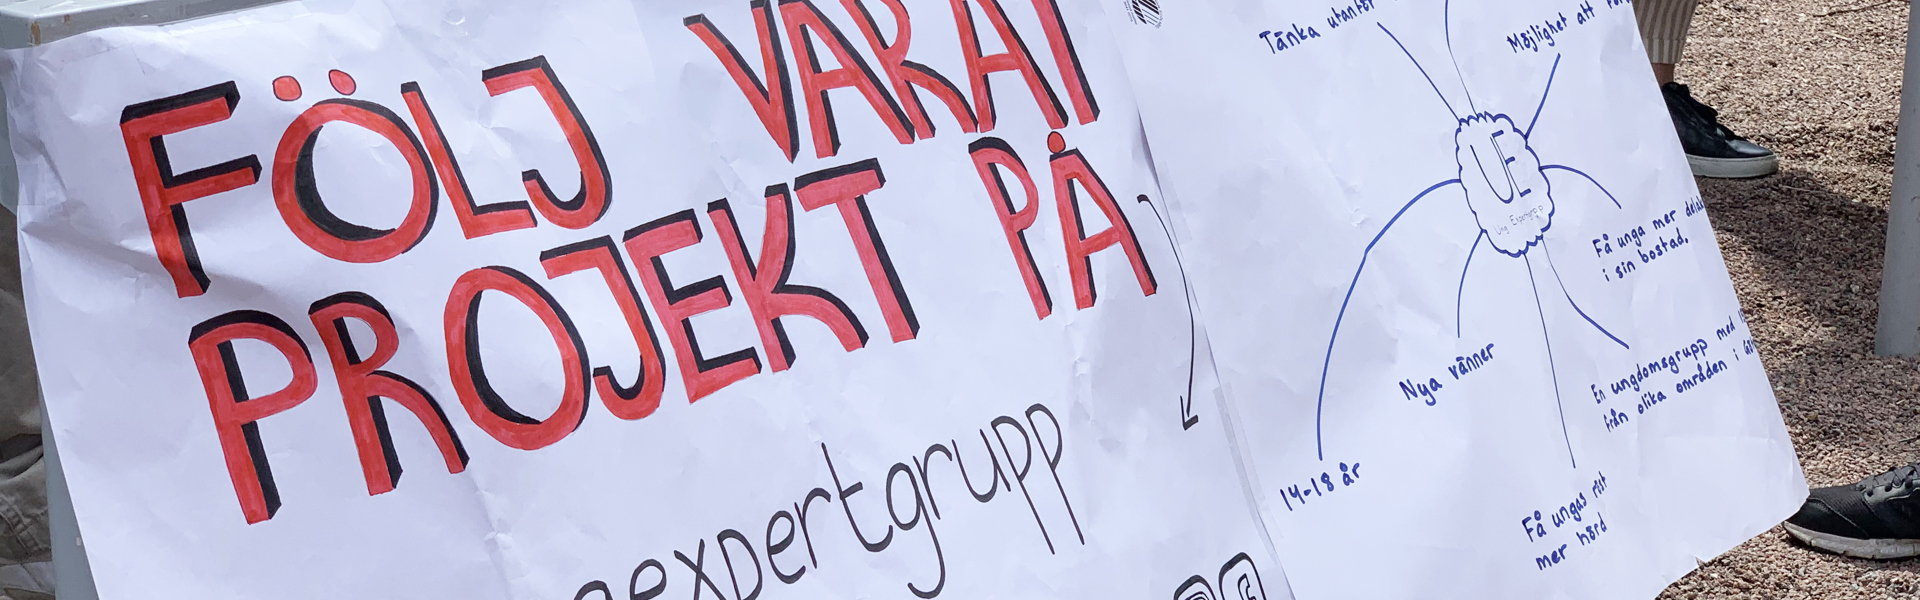 FÖLJ VÅRAT
PROJEKT PÅ
expertgrupp
Tänka utanför
Möjlighet att
UE
Ung Expertgrupp
Få unga mer
i sin bostad.
En ungdomsgrupp med
från olika områden i
Nya vänner
14-18 år
Få ungas röst
mer hörd